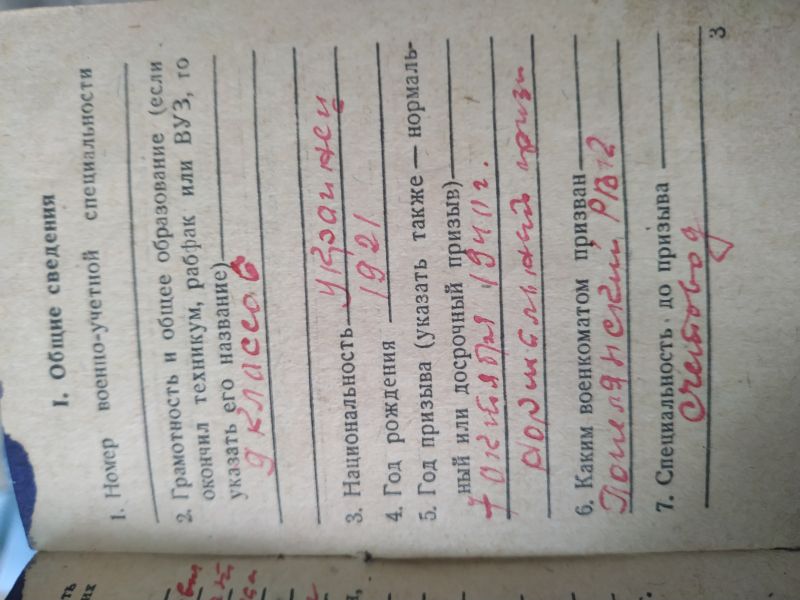 I. Общие сведения
1. Номер военно-учетной специальности
2. Грамотность и общее образование (если
окончил техникум, рабфак или ВУЗ, то
указать его название)
9 классов
3. Национальность украинец
4. Год рождения 1921
5. Год призыва (указать также — нормаль-
ный или досрочный призыв)
7 октября 1940 г.
нормальный призыв
6. Каким военкоматом призван
РВК
7. Специальность до призыва
счетовод
3